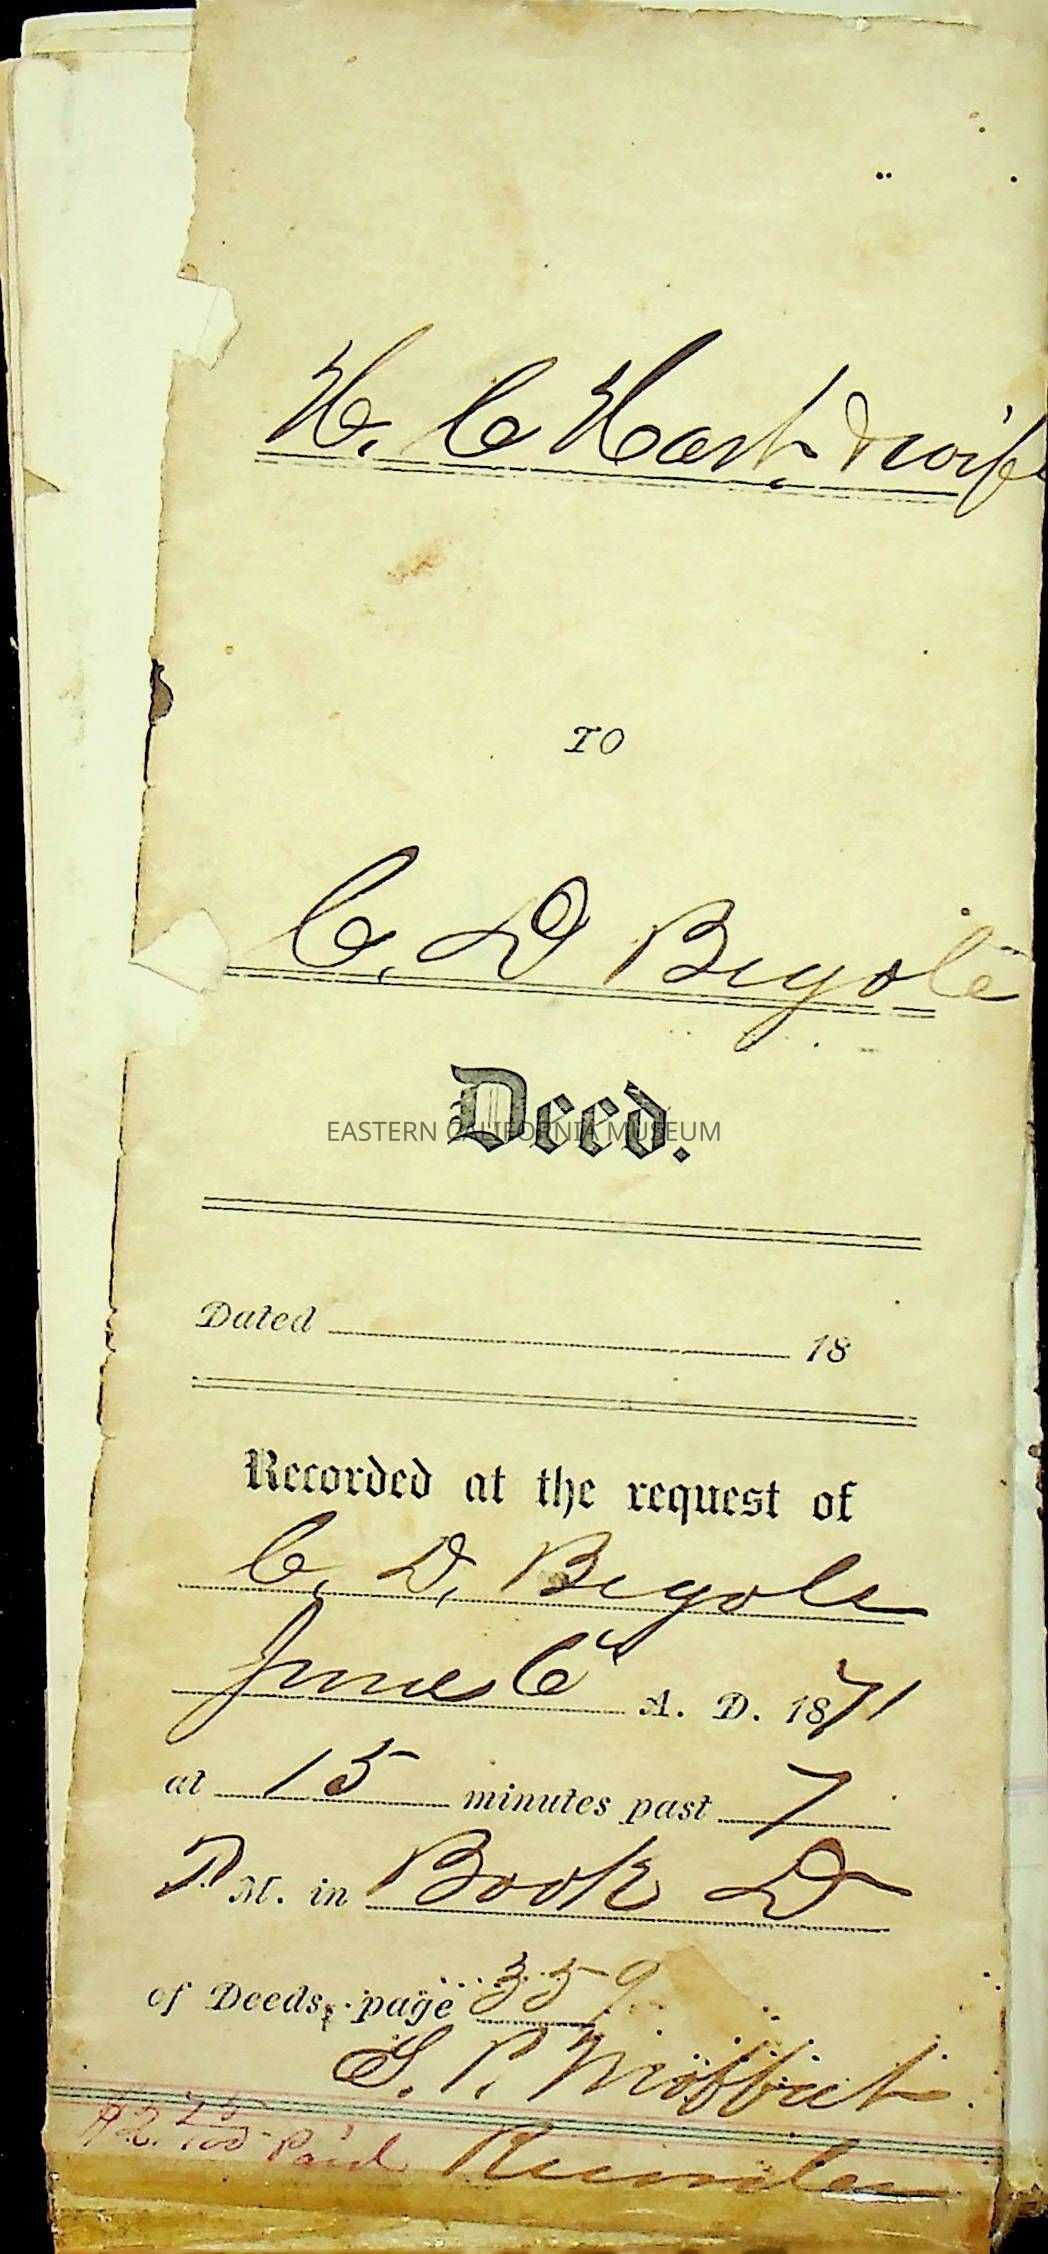 H. C Hart, & wife
TO
C. D Begole
Deed.
EASTERN CALIFORNIA MUSEUM
Dated 18
Recorded at the request of
C. D. Begole
June 6" A. D. 1871
at 15 minutes past 7
P. M. in Book D
of Deeds, page 359
S. P. Moffatt
$2. 25/100 Paid Recorder